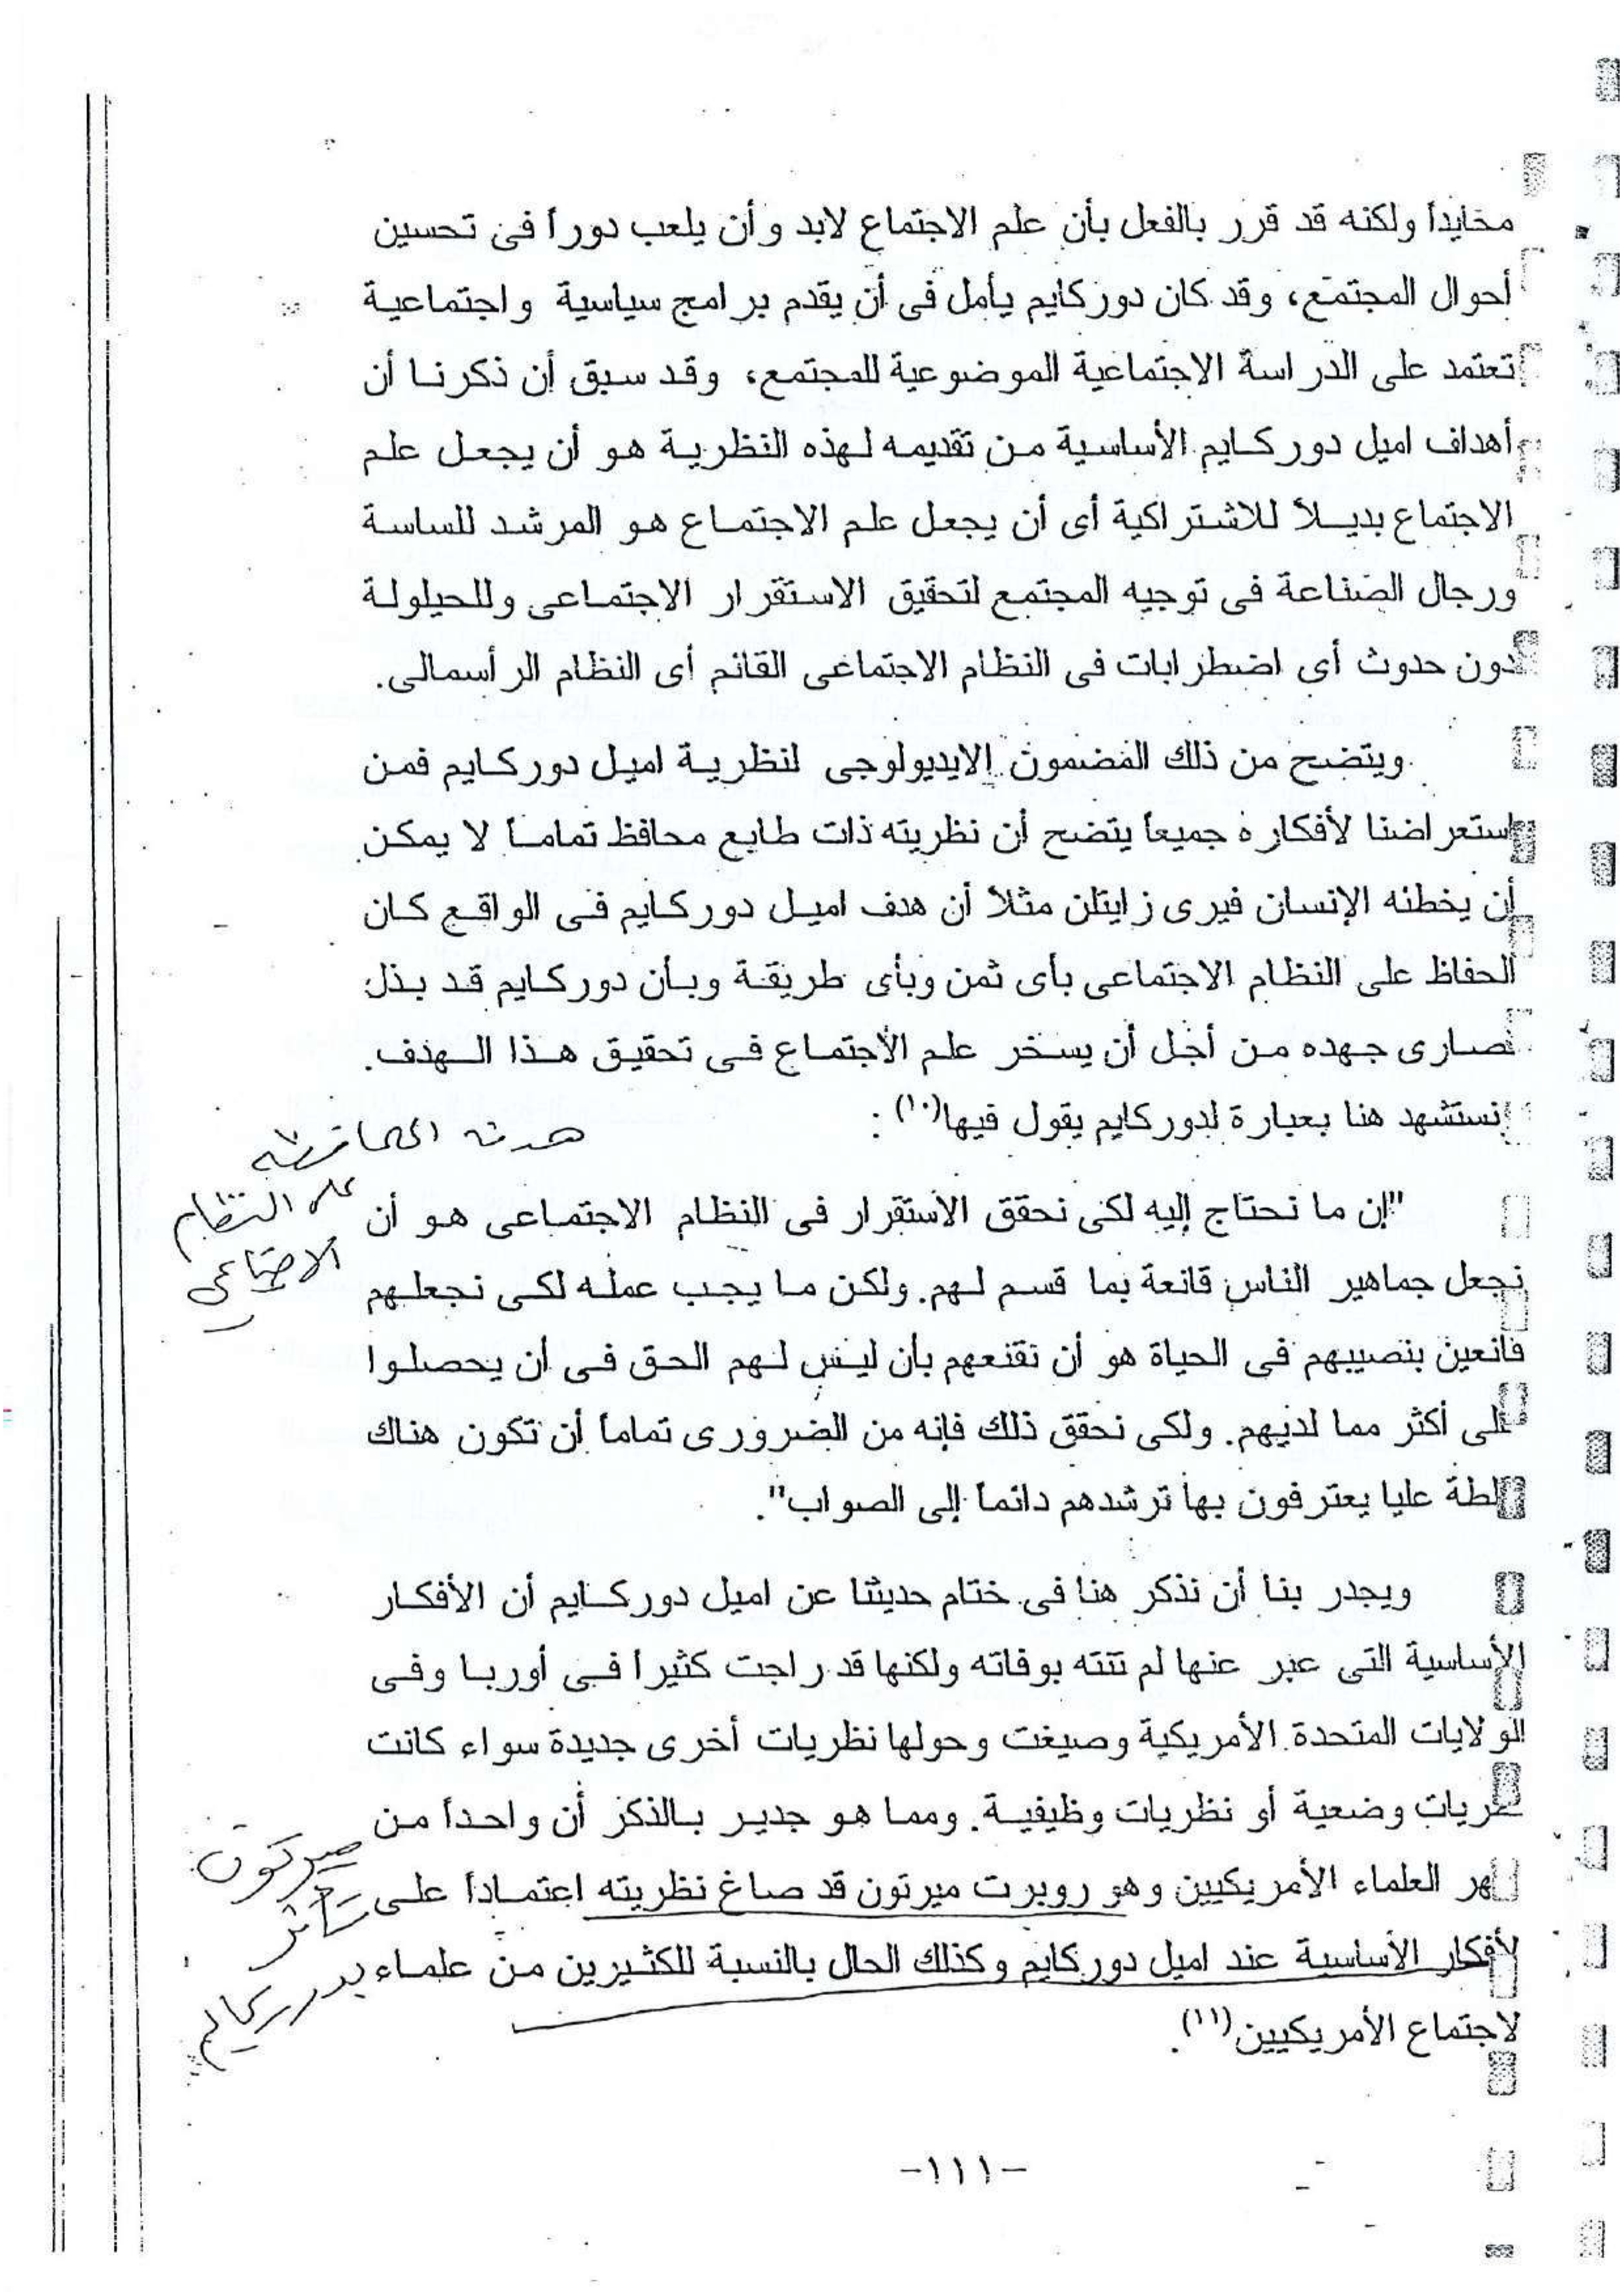 محايداً ولكنه قد قرر بالفعل بأن علم الاجتماع لابد وأن يلعب دوراً فى تحسين
أحوال المجتمع، وقد كان دوركايم يأمل فى أن يقدم برامج سياسية واجتماعية
تعتمد على الدراسة الاجتماعية الموضوعية للمجتمع، وقد سبق أن ذكرنا أن
أهداف اميل دوركايم الأساسية من تقديمه لهذه النظرية هو أن يجعل علم
الاجتماع بديلاً للاشتراكية أى أن يجعل علم الاجتماع هو المرشد للساسة
ورجال الصناعة فى توجيه المجتمع لتحقيق الاستقرار الاجتماعى وللحيلولة
دون حدوث أى اضطرابات فى النظام الاجتماعى القائم أى النظام الرأسمالى.
ويتضح من ذلك المضمون الايديولوجى لنظرية اميل دوركايم فمن
استعراضنا لأفكاره جميعاً يتضح أن نظريته ذات طابع محافظ تماماً لا يمكن
أن يخطئه الإنسان فيرى زايتلن مثلاً أن هدف اميل دوركايم فى الواقع كان
الحفاظ على النظام الاجتماعى بأى ثمن وبأى طريقة وبأن دوركايم قد بذل
صارى جهده من أجل أن يسخر علم الاجتماع فى تحقيق هذا الهدف.
نستشهد هنا بعبارة لدوركايم يقول فيها(١٠):
هدفه المحافظة
على النظام
الاجتماعى
"إن ما نحتاج إليه لكى نحقق الاستقرار فى النظام الاجتماعى هو أن
نجعل جماهير الناس قانعة بما قسم لهم. ولكن ما يجب عمله لكى نجعلهم
قانعين بنصيبهم فى الحياة هو أن نقنعهم بأن ليس لهم الحق فى أن يحصلوا
على أكثر مما لديهم. ولكى نحقق ذلك فإنه من الضرورى تماماً أن تكون هناك
لطة عليا يعترفون بها ترشدهم دائماً إلى الصواب".
ويجدر بنا أن نذكر هنا فى ختام حديثنا عن اميل دوركايم أن الأفكار
الأساسية التى عبر عنها لم تنته بوفاته ولكنها قد راجت كثيرا فى أوربا وفى
الولايات المتحدة الأمريكية وصيغت وحولها نظريات أخرى جديدة سواء كانت
ظريات وضعية أو نظريات وظيفية. ومما هو جدير بالذكر أن واحداً من
هر العلماء الأمريكيين وهو روبرت ميرتون قد صاغ نظريته اعتماداً على
لأفكار الأساسية عند اميل دوركايم وكذلك الحال بالنسبة للكثيرين من علماء
لاجتماع الأمريكيين(١١).
ميرتون
تأثر
بدوركايم
-١١١-